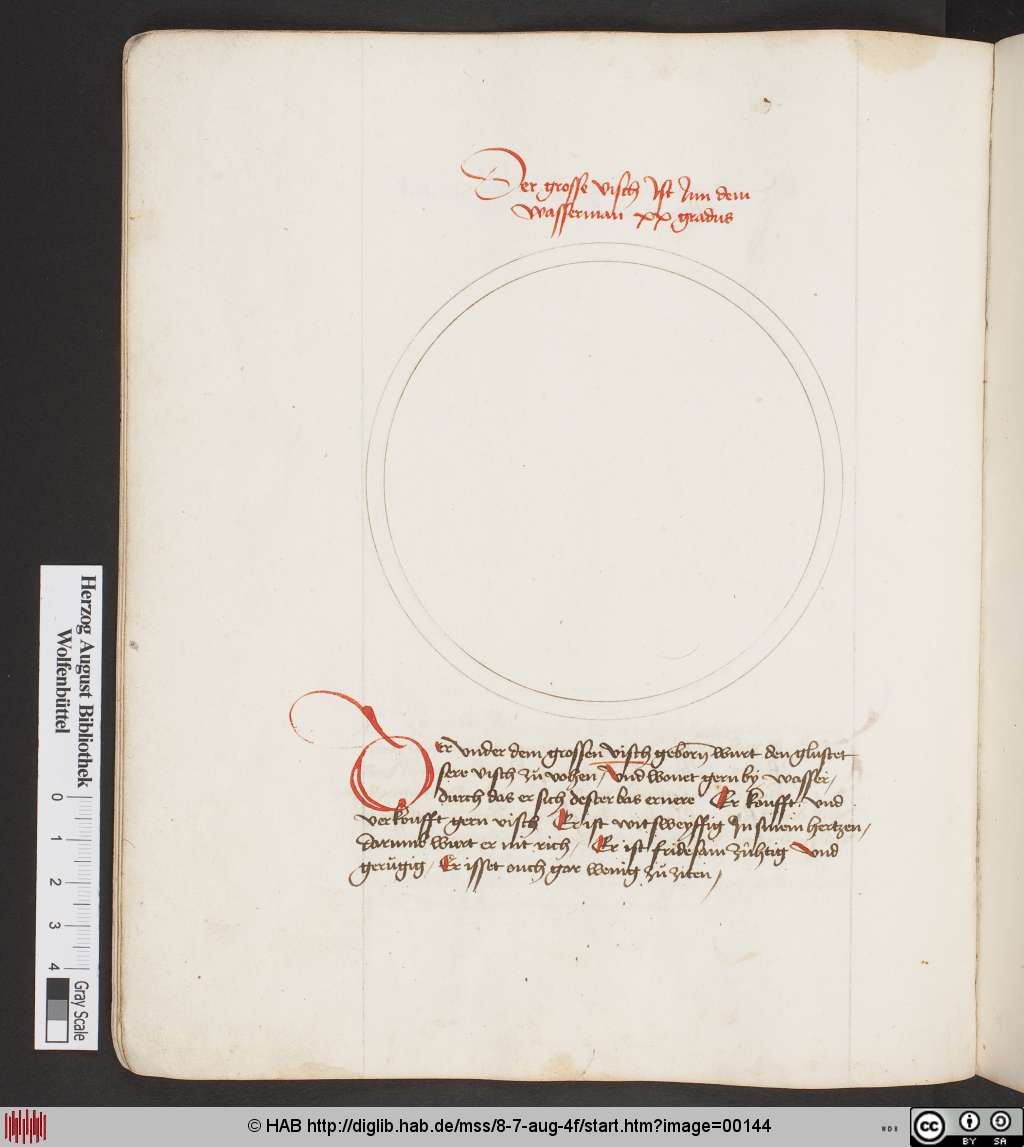 Der grosse visch Ist Inn dem
wasserman xx gradus
Der vnder dem grossen visch geborn wurt den glustet
sere visch zů vohen / Vnd wonet gern by wasser /
durch das er sich dester bas ernere Er koufft vnd
verkoufft gern visch Er ist witsweyffig In sinem hertzen /
darumb wurt er nit rich / Er ist fridesam zùhtig Vnd
gerùgig / Er isset ouch gar wenig zů ziten /
Herzog August Bibliothek
Wolfenbüttel
0 1 2 3 4
Gray Scale
© HAB http://diglib.hab.de/mss/8-7-aug-4f/start.htm?image=00144
WDB
cc BY SA